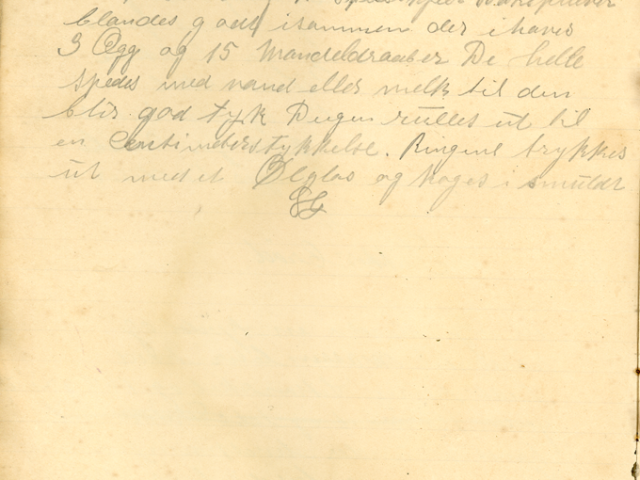 blandes godt isammen der ihaves
3 Egg og 15 Mandeldraaber De hele
spedes med vand eller melk til den
blir god tyk Deigen rulles ut til
en Centimeterstykkelse. Ringene trykkes
ut med et Ølglas og koges i smuldt